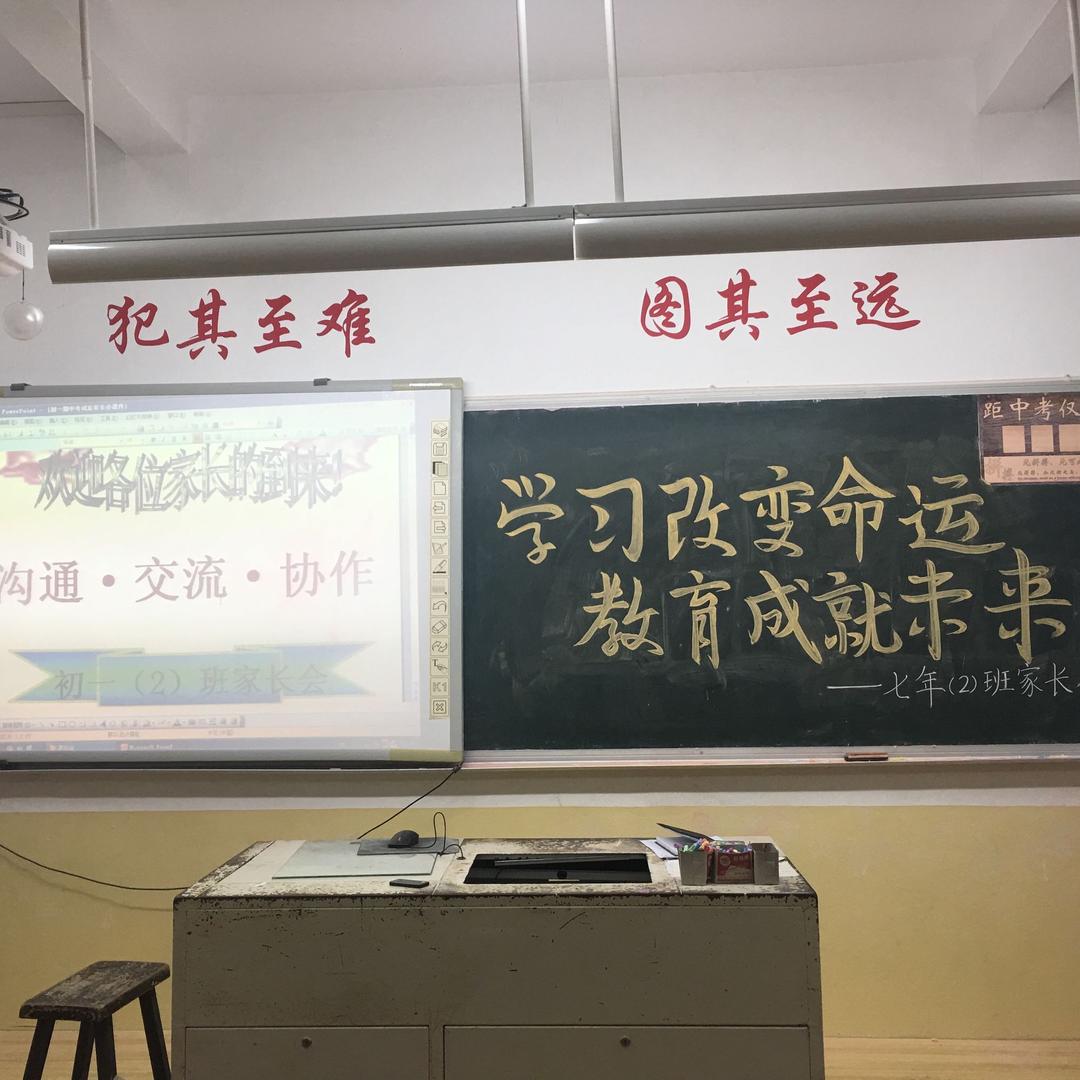 犯其至难
图其至远
欢迎各位家长的到来!
沟通·交流·协作
初一(2)班家长会
学习改变命运
教育成就未来
——七年(2)班家长
距中考仅
PowerPoint
K1